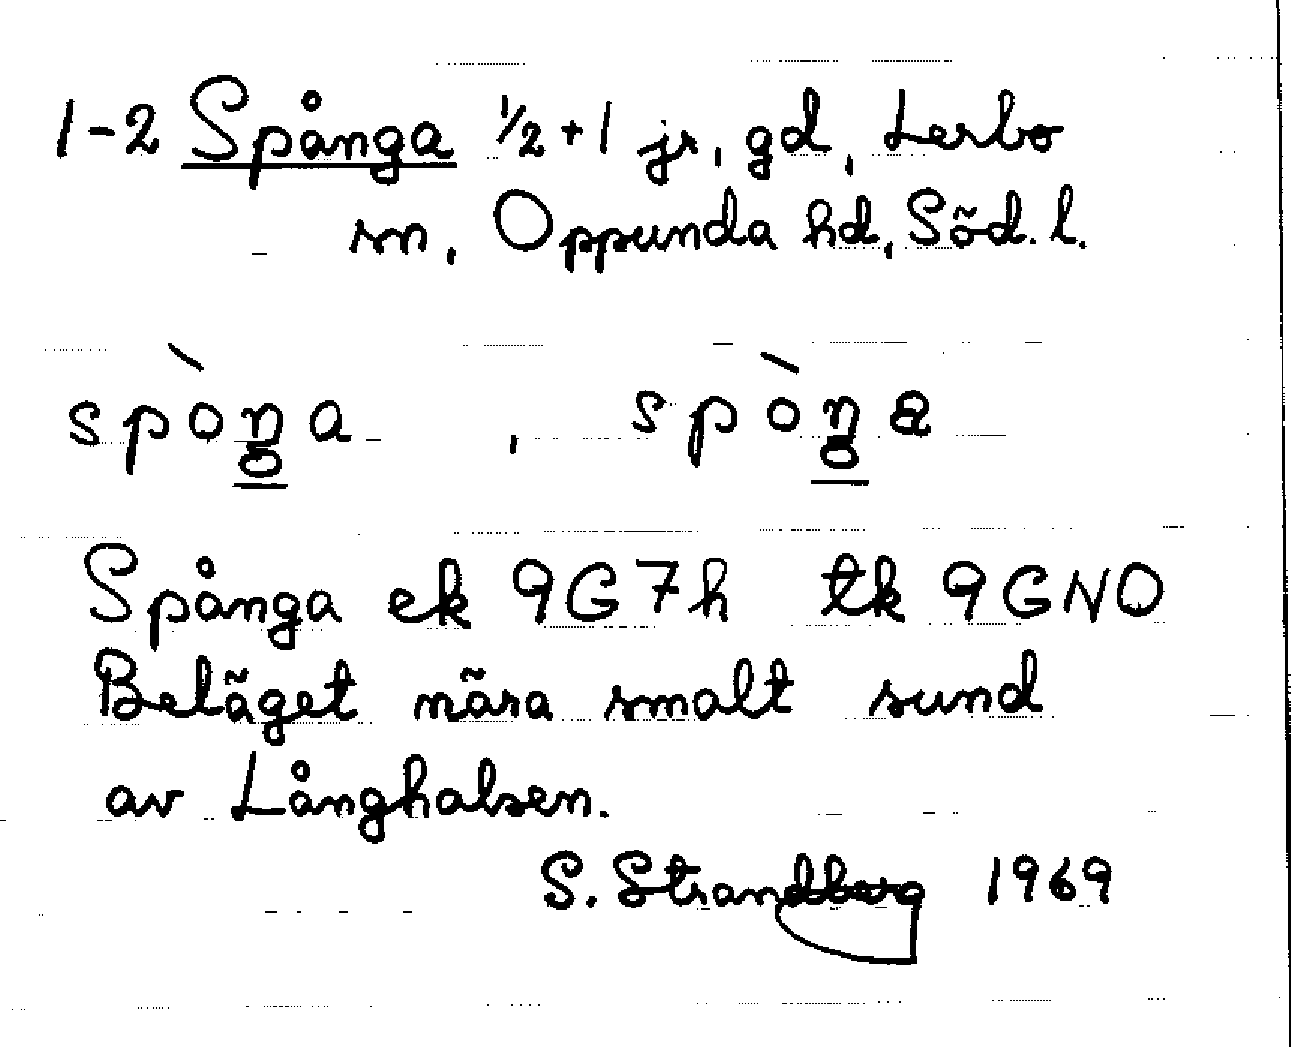 1-2 Spånga ½+1 jr, gd, Lerbo
sn, Oppunda hd, Söd. l.
spòŋa , spòŋa
Spånga ek 9G7h tk 9GNO
Beläget nära smalt sund
av Långhalsen.
S. Strandberg 1969